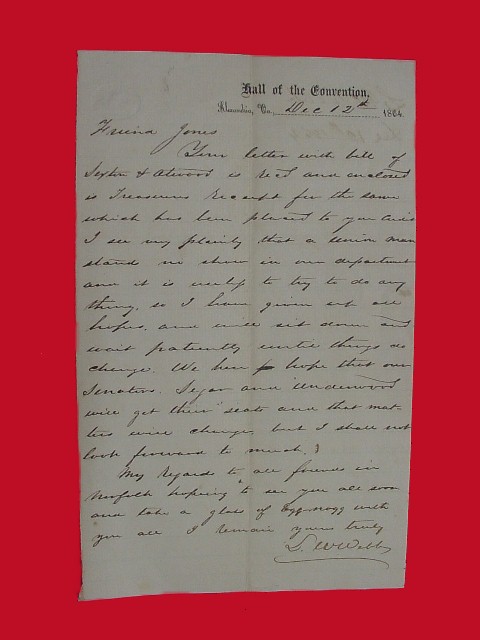 Hall of the Convention,
Alexandria, Va., Dec 12th 1864
Friend Jones
Your letter with bill of
& Atwood is recd and enclosed
is Treasurers Receipt for the same
which has been placed to your credit
I see very plainly that a union man
stand no show in our department
and it is useless to try to do any
thing, so I have given up all
hopes, and will sit down and
wait patiently until things do
change. We have hope that our
Senators, Segar and Underwood
will get their seats and that mat-
ters will change, but I shall not
look forward to much.
My Regards to all friends in
Norfolk hoping to see you all soon
and take a glass of Eggnogg with
you all I remain yours truly